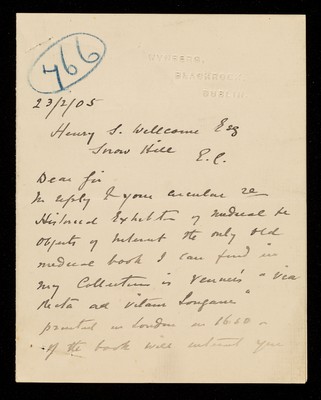 466
BLACKROCK,
DUBLIN.
23/2/05
Henry S. Wellcome Esq
Snow Hill
E.C.
Dear Sir
In reply to your circular re
Historical Exhibition of medical &c
Objects of Interest the only old
medical book I can find in
my Collection is Venner's "Via
Recta ad vitam Longam"
printed in London in 1660 -
If the book will interest you